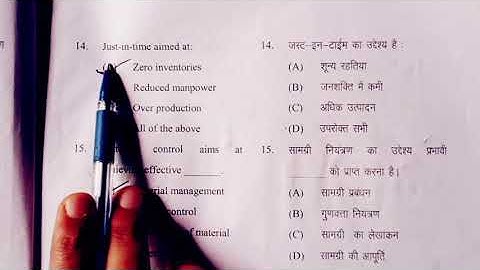 14. Just-in-time aimed at:
Zero inventories
Reduced manpower
Over production
All of the above
15. control aims at
effective ______.
management
control
of material
14. जस्ट-इन-टाईम का उद्देश्य है :
(A) शून्य रहतिया
(B) जनशक्ति में कमी
(C) अधिक उत्पादन
(D) उपरोक्त सभी
15. सामग्री नियत्रण का उद्देश्य प्रभावी
______ को प्राप्त करना है।
(A) सामग्री प्रबधन
(B) गुणवत्ता नियत्रण
(C) सामग्री का लेखाकन
(D) सामग्री की आपूर्ति